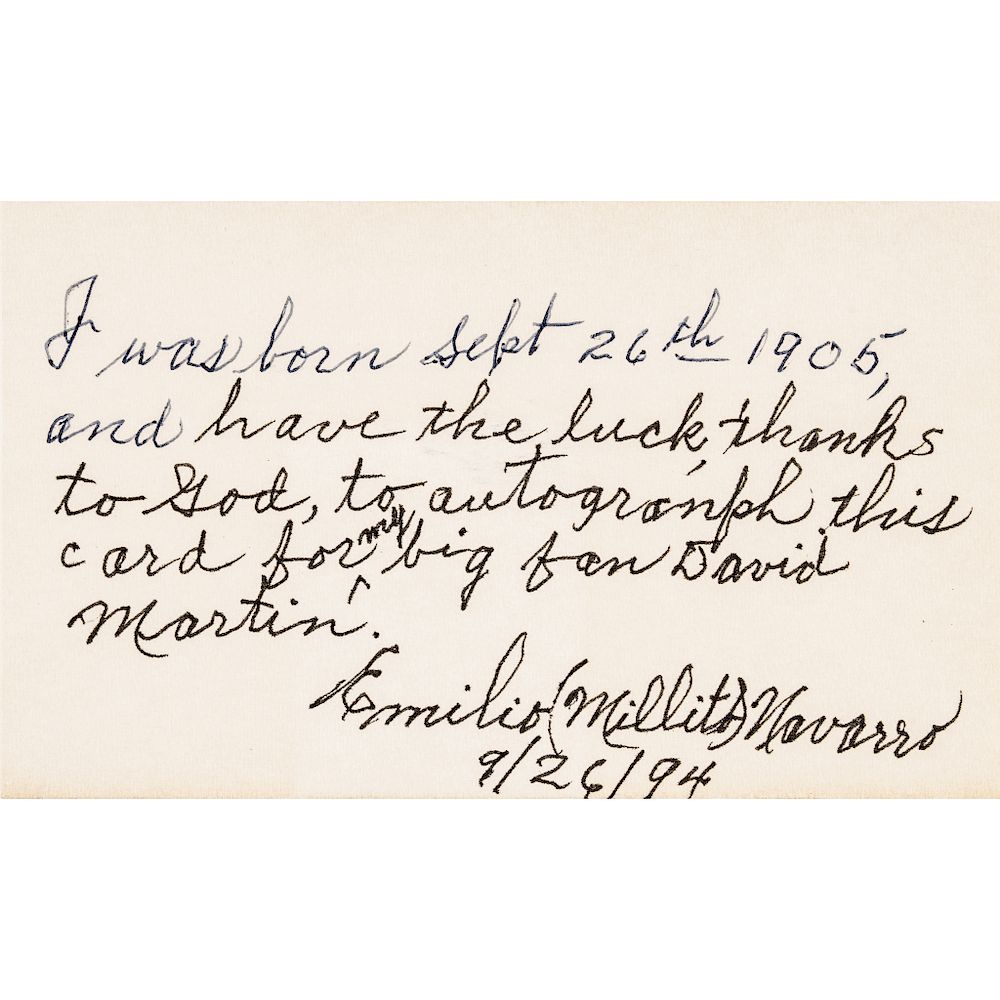 I was born Sept 26th 1905,
and have the luck, thanks
to God, to autogranph this
card for my big fan David
Martin.
Emilio (Millito) Navarro
9/26/94